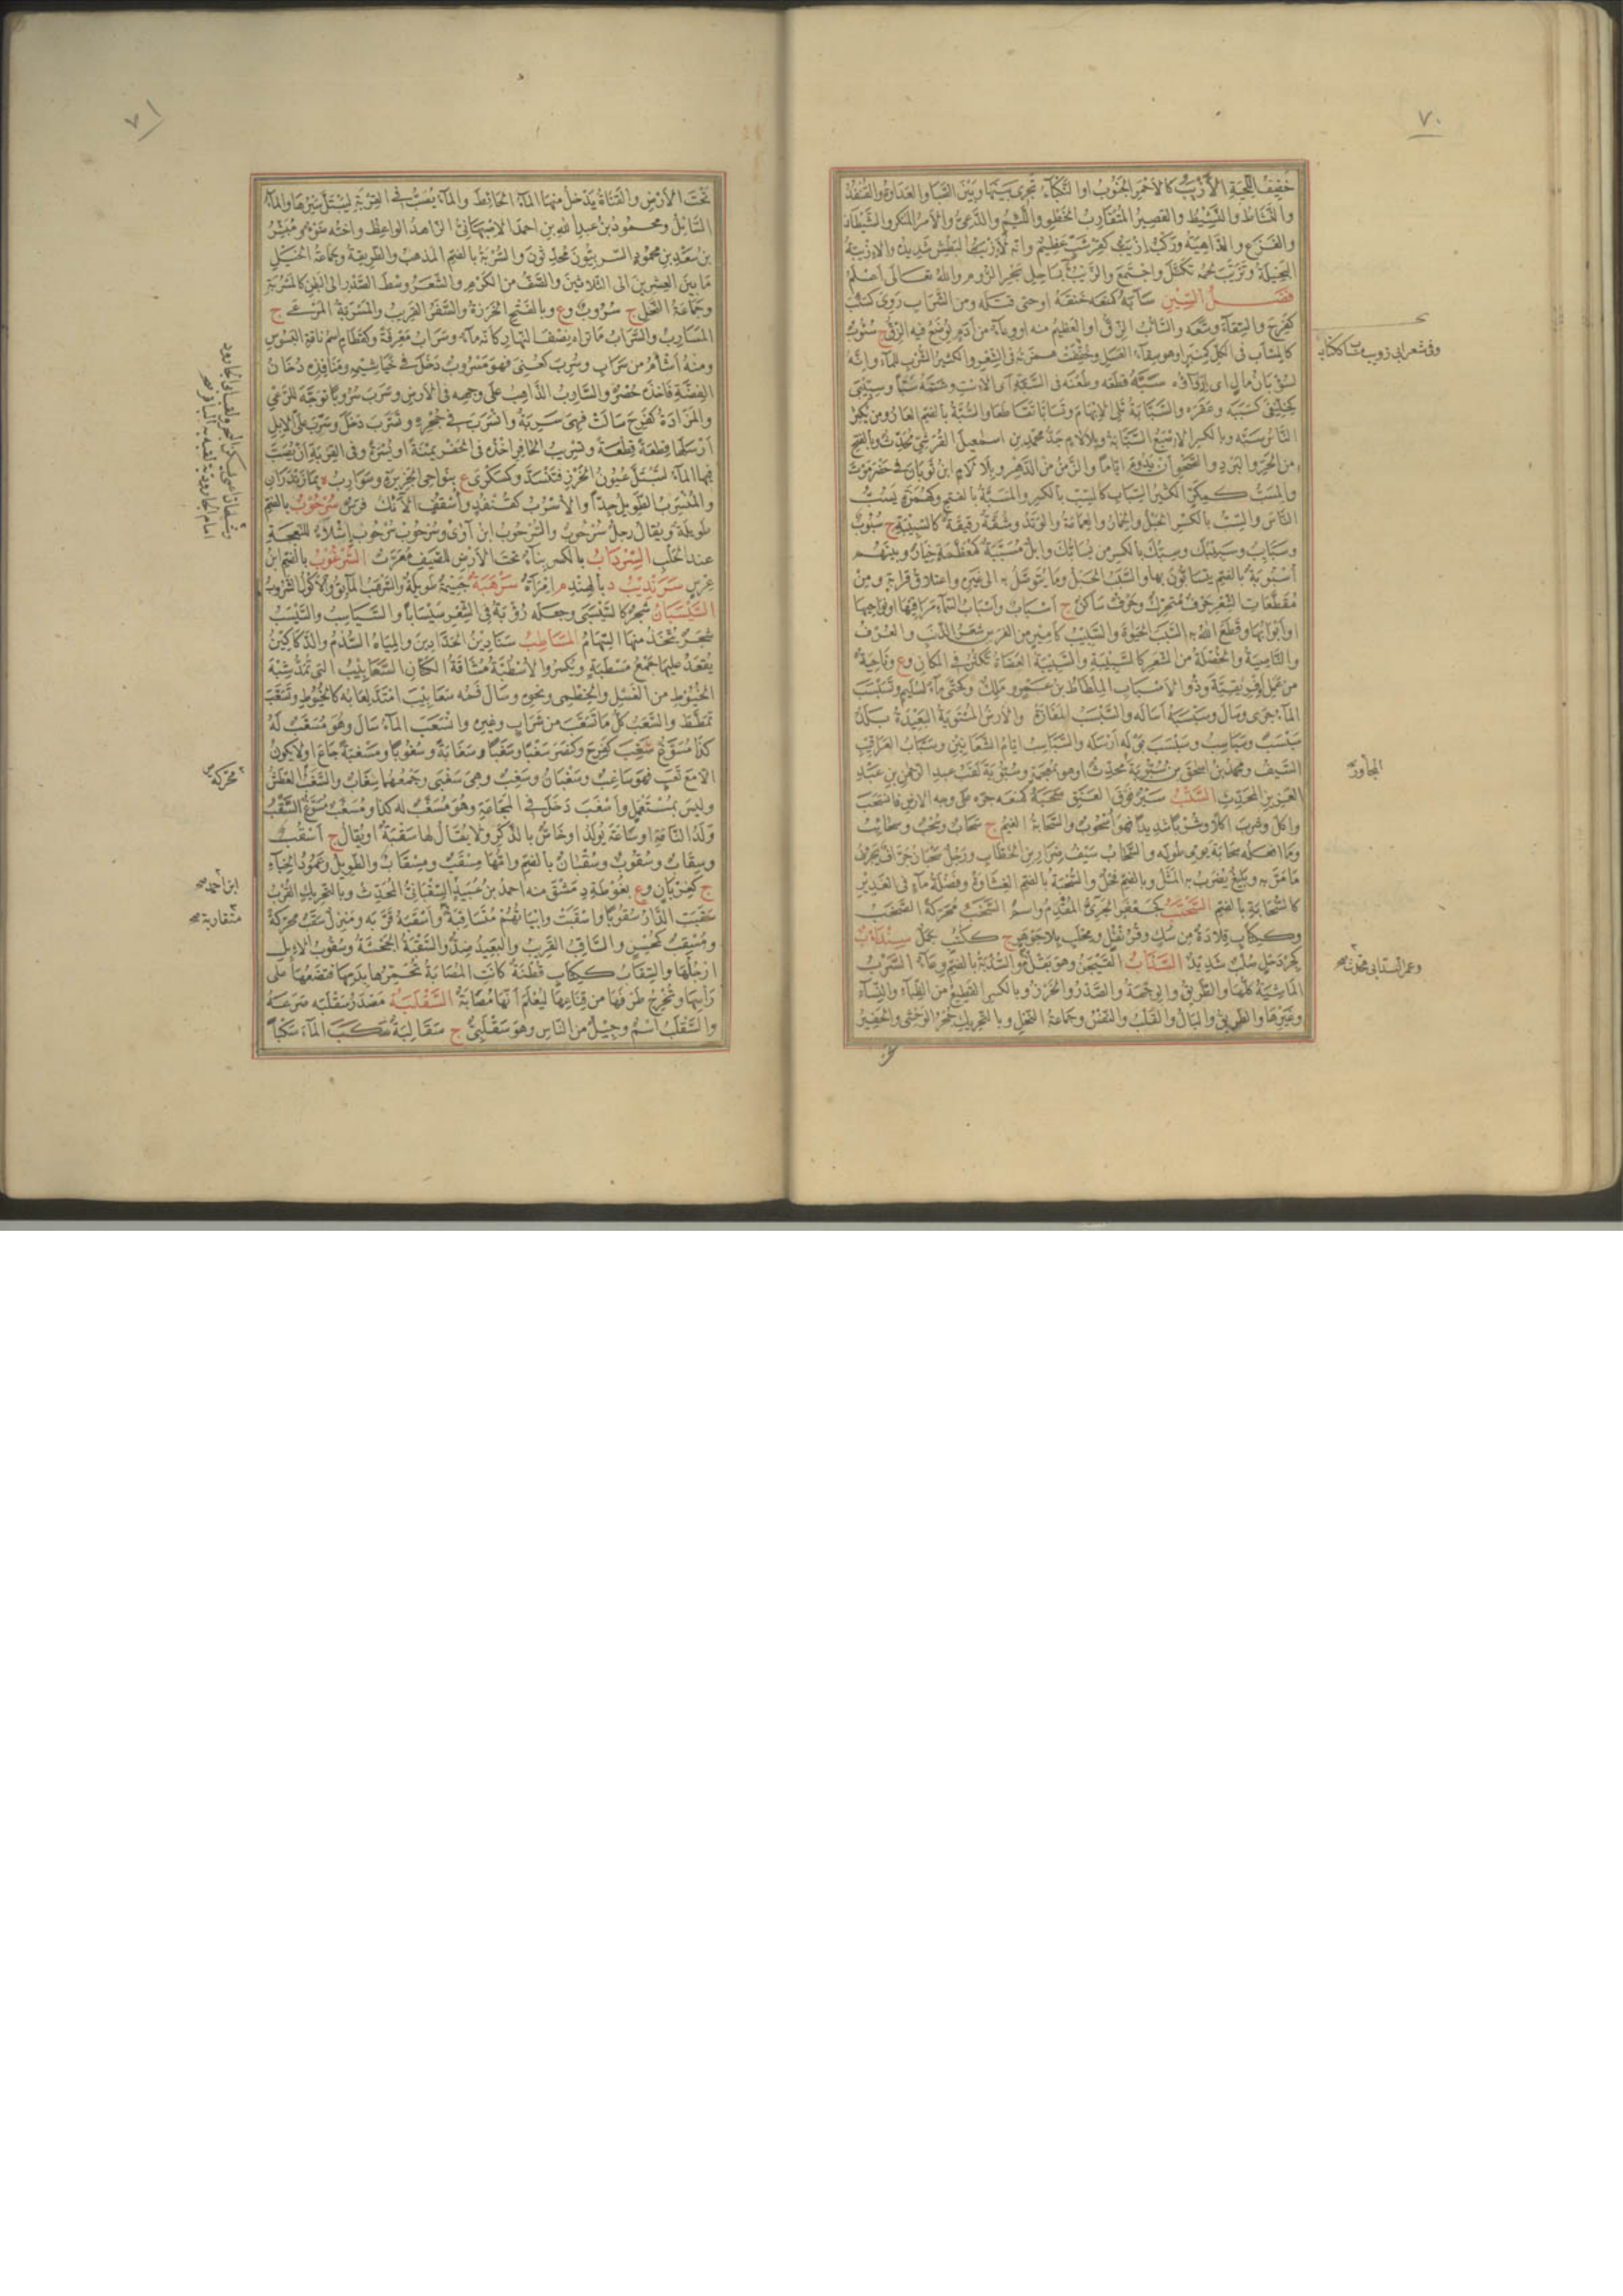 ٧٠
خفيف اللحية الأزيب كالأحمر الجنوب او النكباء تجري بينها وبين الصبا والعداوة والقنفذ
والنشاط والنشيط والقصير المتقارب الخطو واللئيم والدعي والامر المنكر والشيطان
والفزع والداهية وركب ازيب كقرشب عظيم وانه لأزيب البطش شديده والازيبة
البخيلة وتزيب لحمه تكتل واجتمع والزيب بساحل بحر الروم والله تعالى اعلم
فصل السين سأبه كمنعه خنقه او حتى قتله ومن الشراب روى كسئب
كفرح والسقاء وسعه والسأب الزق او العظيم منه او وعاء من أدم يوضع فيه الزق ج سؤوب
كالمسأب في الكل كمنبر او هو سقاء العسل وخففت همزته في الشعر والكثير الشرب للماء وانه
لسؤبان مال اى ازاؤه سبه قطعه وطعنه في السبة اى الاست وشتمه سبا وسبيبى
كخليفى كسببه وعقره والسبابة تلى الابهام وتسابا تقاطعا والسبة بالضم العار ومن يكثر
الناس سبه وبالكسر الاصبع السبابة وبلا لام جد محمد بن اسمعيل القرشي محدث وبالفتح
من الحر والبرد والصحو ان يدوم اياما والزمن من الدهر وبلا لام ابن ثوبان في حضرموت
والمسب كمكر الكثير السباب كالسب بالكسر والمسبة بالفتح وكهمزة يسب
الناس والسب بالكسر الحبل والخمار والعمامة والوتد وشقة رقيقة كالسبيبة ج سبوب
وسبائب وسبيبك وسبك بالكسر من يسابك وابل مسببة كمعظمة خيار وبينهم
اسبوبة بالضم يتسابون بها والسبب الحبل وما يتوصل به الى غيره واعتلاق قرابة ومن
مقطعات الشعر حرف متحرك وحرف ساكن ج اسباب واسباب السماء مراقيها او نواحيها
او ابوابها وقطع الله به السبب الحيوة والسبيب كأمير من الفرس شعر الذنب والعرف
والناصية والخصلة من الشعر كالسبيبة والسبيبة العضاه تكثر في المكان وع وناحية
من عمل افريقية وذو الاسباب الملطاط بن عمرو ملك وكحتى ماء لسليم وتسبسب
الماء جرى وسال وسبسبه اساله والسبسب المفازة والارض المستوية البعيدة بلد
سبسب وسباسب وسبسب بوله ارسله والسباسب ايام السعانين وسباب العراقيب
السيف ومحمد بن اسحق بن سبوبة محدث او هو بمعجمة وسبوبة لقب عبد الرحمن بن عبد
العزيز المحدث السحب سير فوق العنق سحبه كمنعه جره على وجه الارض فانسحب
واكل وشرب اكلا وشربا شديدا فهو اسحوب والسحابة الغيم ج سحاب وسحب وسحائب
وما افعله سحابة يومى طوله والسحاب سيف ضرار بن الخطاب ورجل سحبان جراف يجرف
ما مر به وبليغ يضرب به المثل وبالضم فحل والسحبة بالضم الغشاوة وفضلة ماء في الغدير
كالسحابة بالضم السحتب كجعفر الجرئ المقدم واسم السخب محركة الصخب
وككتاب قلادة من سك وقرنفل ومحلب بلا جوهر ج ككتب جمل سندأب
كجردحل صلب شديد السذاب الفيجن وهو بقل م والسذبة بالضم وعاء السرب
الماشية كلها والطريق والوجهة والصدر والخرز وبالكسر القطيع من الظباء والنساء
وغيرها والطريق والبال والقلب والنفس وجماعة النخل وبالتحريك جحر الوحشي والحفير
وفي شعر ابي ذويب مساب ككتاب
المجاور
٧١
تحت الارض والقناة يدخل منها الماء الحائط والماء يصب في القربة ليبتل سيرها والماء
السائل ومحمود بن عبد الله بن احمد الاصبهاني الزاهد الواعظ واخته ضوء ومبشر
بن سعد بن محمود السربيون محدثون والسربة بالضم المذهب والطريقة وجماعة الخيل
ما بين العشرين الى الثلاثين والصف من الكرم والشعر وسط الصدر الى البطن كالمسربة
وجماعة النخل ج سروب وع وبالفتح الخرزة والسفر القريب والمسربة المرعى ج
المسارب والسراب ما تراه نصف النهار كأنه ماء وسراب معرفة وكقطام اسم ناقة البسوس
ومنه اشأم من سراب وسرب كعنى فهو مسروب دخل في خياشيمه ومنافذه دخان
الفضة فاخذه حصر والسارب الذاهب على وجهه في الارض وسرب سروبا توجه للرعي
والمزادة كفرح سالت فهي سربة وانسرب في جحره وتسرب دخل وسرب على الابل
ارسلها قطعة قطعة وتسريب الحافر اخذه في الحفر يمنة او يسرة وفي القربة ان يصب
فيها الماء لتبتل عيون الخرز فتنسد وكسكرى ع بنواحي الجزيرة وسوارب ة بمازندران
والمنسرب الطويل جدا والاسرب كقنفذ واسقف الآنك فرس سرحوب بالضم
طويلة ويقال رجل سرحوب والسرحوب ابن آوى وسرحوب سرحوب اشلاء للنعجة
عند الحلب السرداب بالكسر بناء تحت الارض للصيف معرب السرعوب بالضم ابن
عرس سرنديب د بالهند م امرأة سرهبة جسيمة طويلة والسرهب المائق والاكول الشروب
السيسبان شجر كالسيسبى وجعله رؤبة في الشعر سيسابا والسياسب والسيسب
شجر يتخذ منها السهام المساطب سنادين الحدادين والمياه السدم والدكاكين
يقعد عليها جمع مسطبة ويكسر والاسطبة مشاقة الكتان السعابيب التي تمد شبه
الخيوط من العسل والخطمي ونحوه وسال فمه سعابيب امتد لعابه كالخيوط وتسعب
تمطط والسعب كل ما تسعب من شراب وغيره وانسعب الماء سال وهو مسعب له
كذا مسوغ سغب كفرح وكنصر سغبا وسغبا وسغابة وسغوبا ومسغبة جاع او لا يكون
الا مع تعب فهو ساغب وسغبان وسغب وهي سغبى وجمعهما سغاب والسغب العطش
وليس بمستعمل واسغب دخل في المجاعة وهو مسغب له كذا ومسغب مسوغ السقب
ولد الناقة او ساعة يولد او خاص بالذكر ولا يقال لها سقبة او يقال ج اسقب
وسقاب وسقوب وسقبان بالضم وامها مسقب ومسقاب والطويل وعمود الخباء
ج كغربان وع بغوطة دمشق منه احمد بن عبيد السقباني المحدث وبالتحريك القرب
سقبت الدار سقوبا واسقبت وابياتهم متساقبة واسقبه قربه ومنزل سقب محركة
ومسقب كمحسن والساقب القريب والبعيد ضد والسقبة الجحشة وسقوب الابل
ارجلها والسقاب ككتاب قطنة كانت المصابة تحمرها بدمها فتضعها على
رأسها وتخرج طرفها من قناعها ليعلم انها مصابة السقلبة مصدر سقلبه صرعه
والسقلب اسم وجيل من الناس وهو سقلبي ج سقالبة سكب الماء سكبا
محركة
ابن احمد
متقاربة